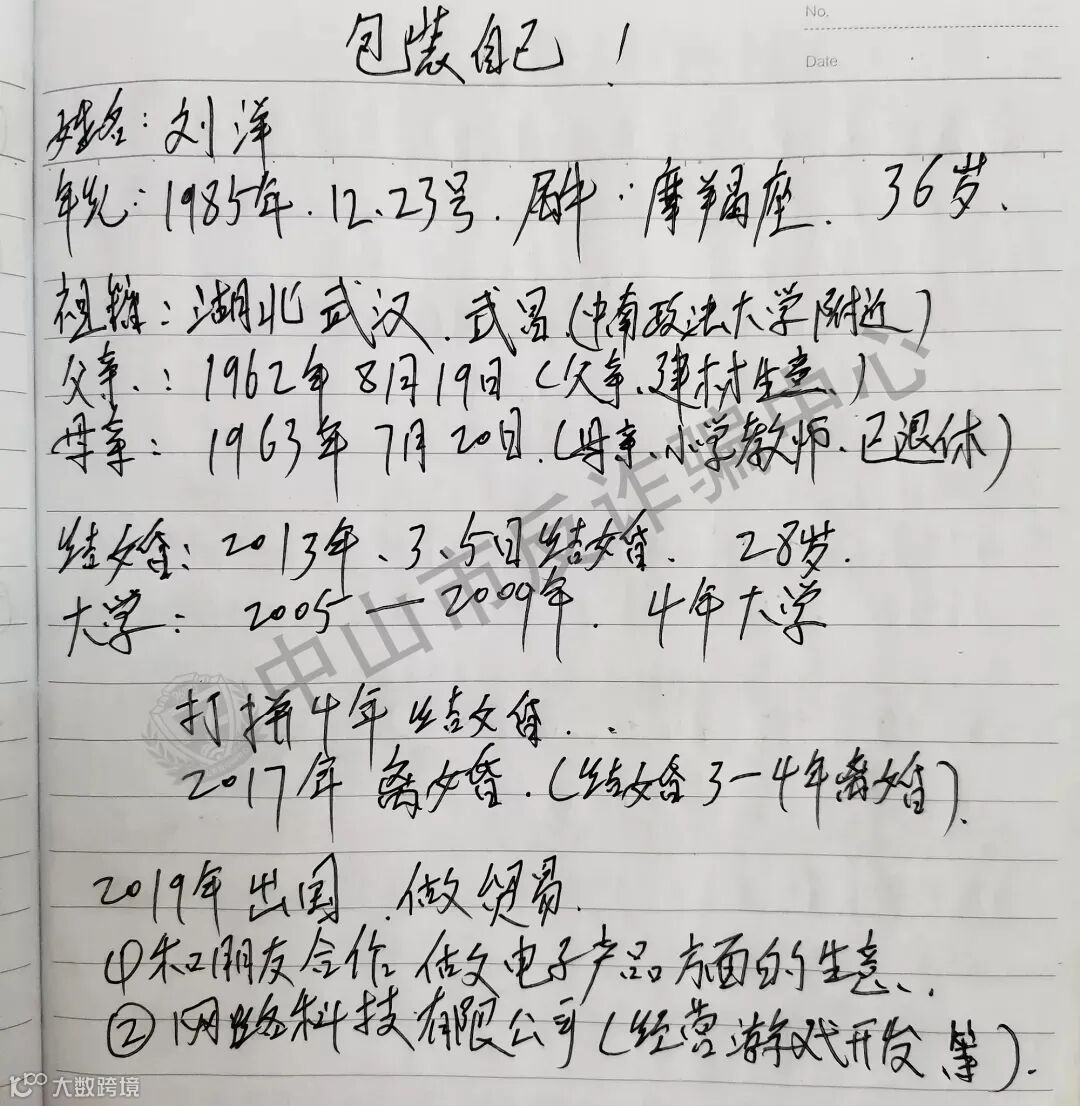 No.
Date
包装自己！
姓名：刘洋
年先：1985年.12.23号.属牛：摩羯座. 36岁.
祖籍：湖北武汉.武昌(中南政法大学附近)
父亲.：1962年8月19日(父亲.建材生意.)
母亲：1963年7月20日.(母亲.小学教师.已退休)
结婚：2013年.3.5日结婚. 28岁.
大学：2005—2009年. 4年大学
打拼4年结婚..
2017年离婚.(结婚3-4年离婚).
2019年出国.做贸易.
①和朋友合作做电子产品方面的生意.
②网络科技有限公司(经营游戏开发等).
中山市反诈骗中心
大数跨境